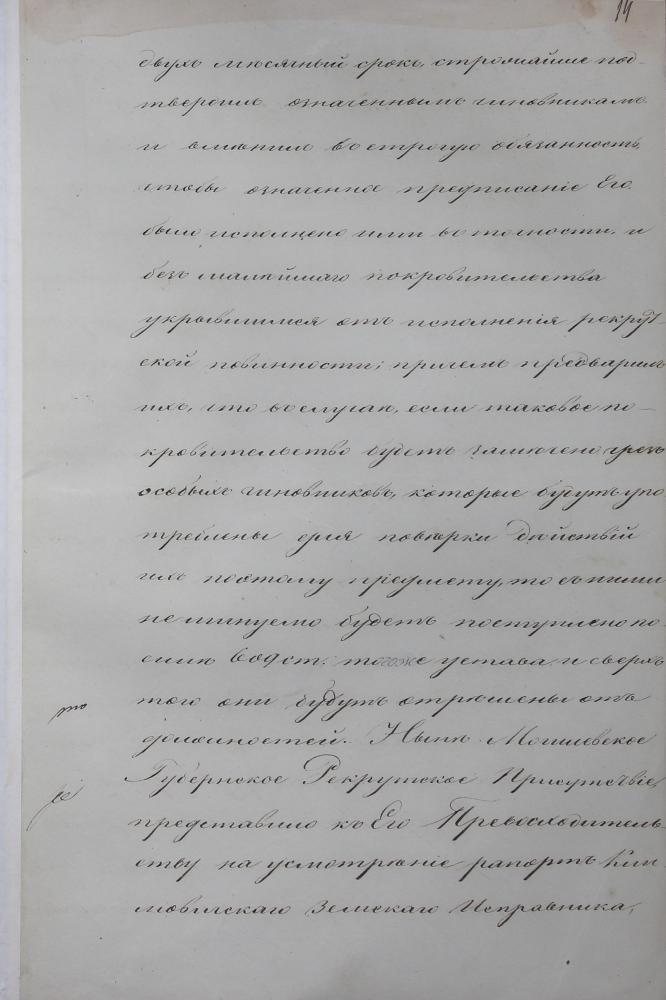 14
двухъ мѣсячный срокъ, строжайше под-
твердилъ означеннымъ чиновникамъ
и вмѣнилъ въ строгую обязанность,
чтобы означенное предписаніе Его
было исполнено ими въ точности, и
безъ малѣйшаго покровительства
укрывшимся отъ исполненія рекрут-
ской повинности; причемъ предварилъ
ихъ, что въ случаѣ, если таковое по-
кровительство будетъ замѣчено чрезъ
особыхъ чиновниковъ, которые будутъ упо
треблены для повѣрки дѣйствій
ихъ по этому предмету, то съ ними
неминуемо будетъ поступлено по
силѣ ст. тогоже устава и сверхъ
того они будутъ отрѣшены отъ
должностей. Нынѣ Могилевское
Губернское Рекрутское Присутствіе,
представило къ Его Превосходитель-
ству на усмотрѣніе рапортъ Кли-
мовичскаго Земскаго Исправника,